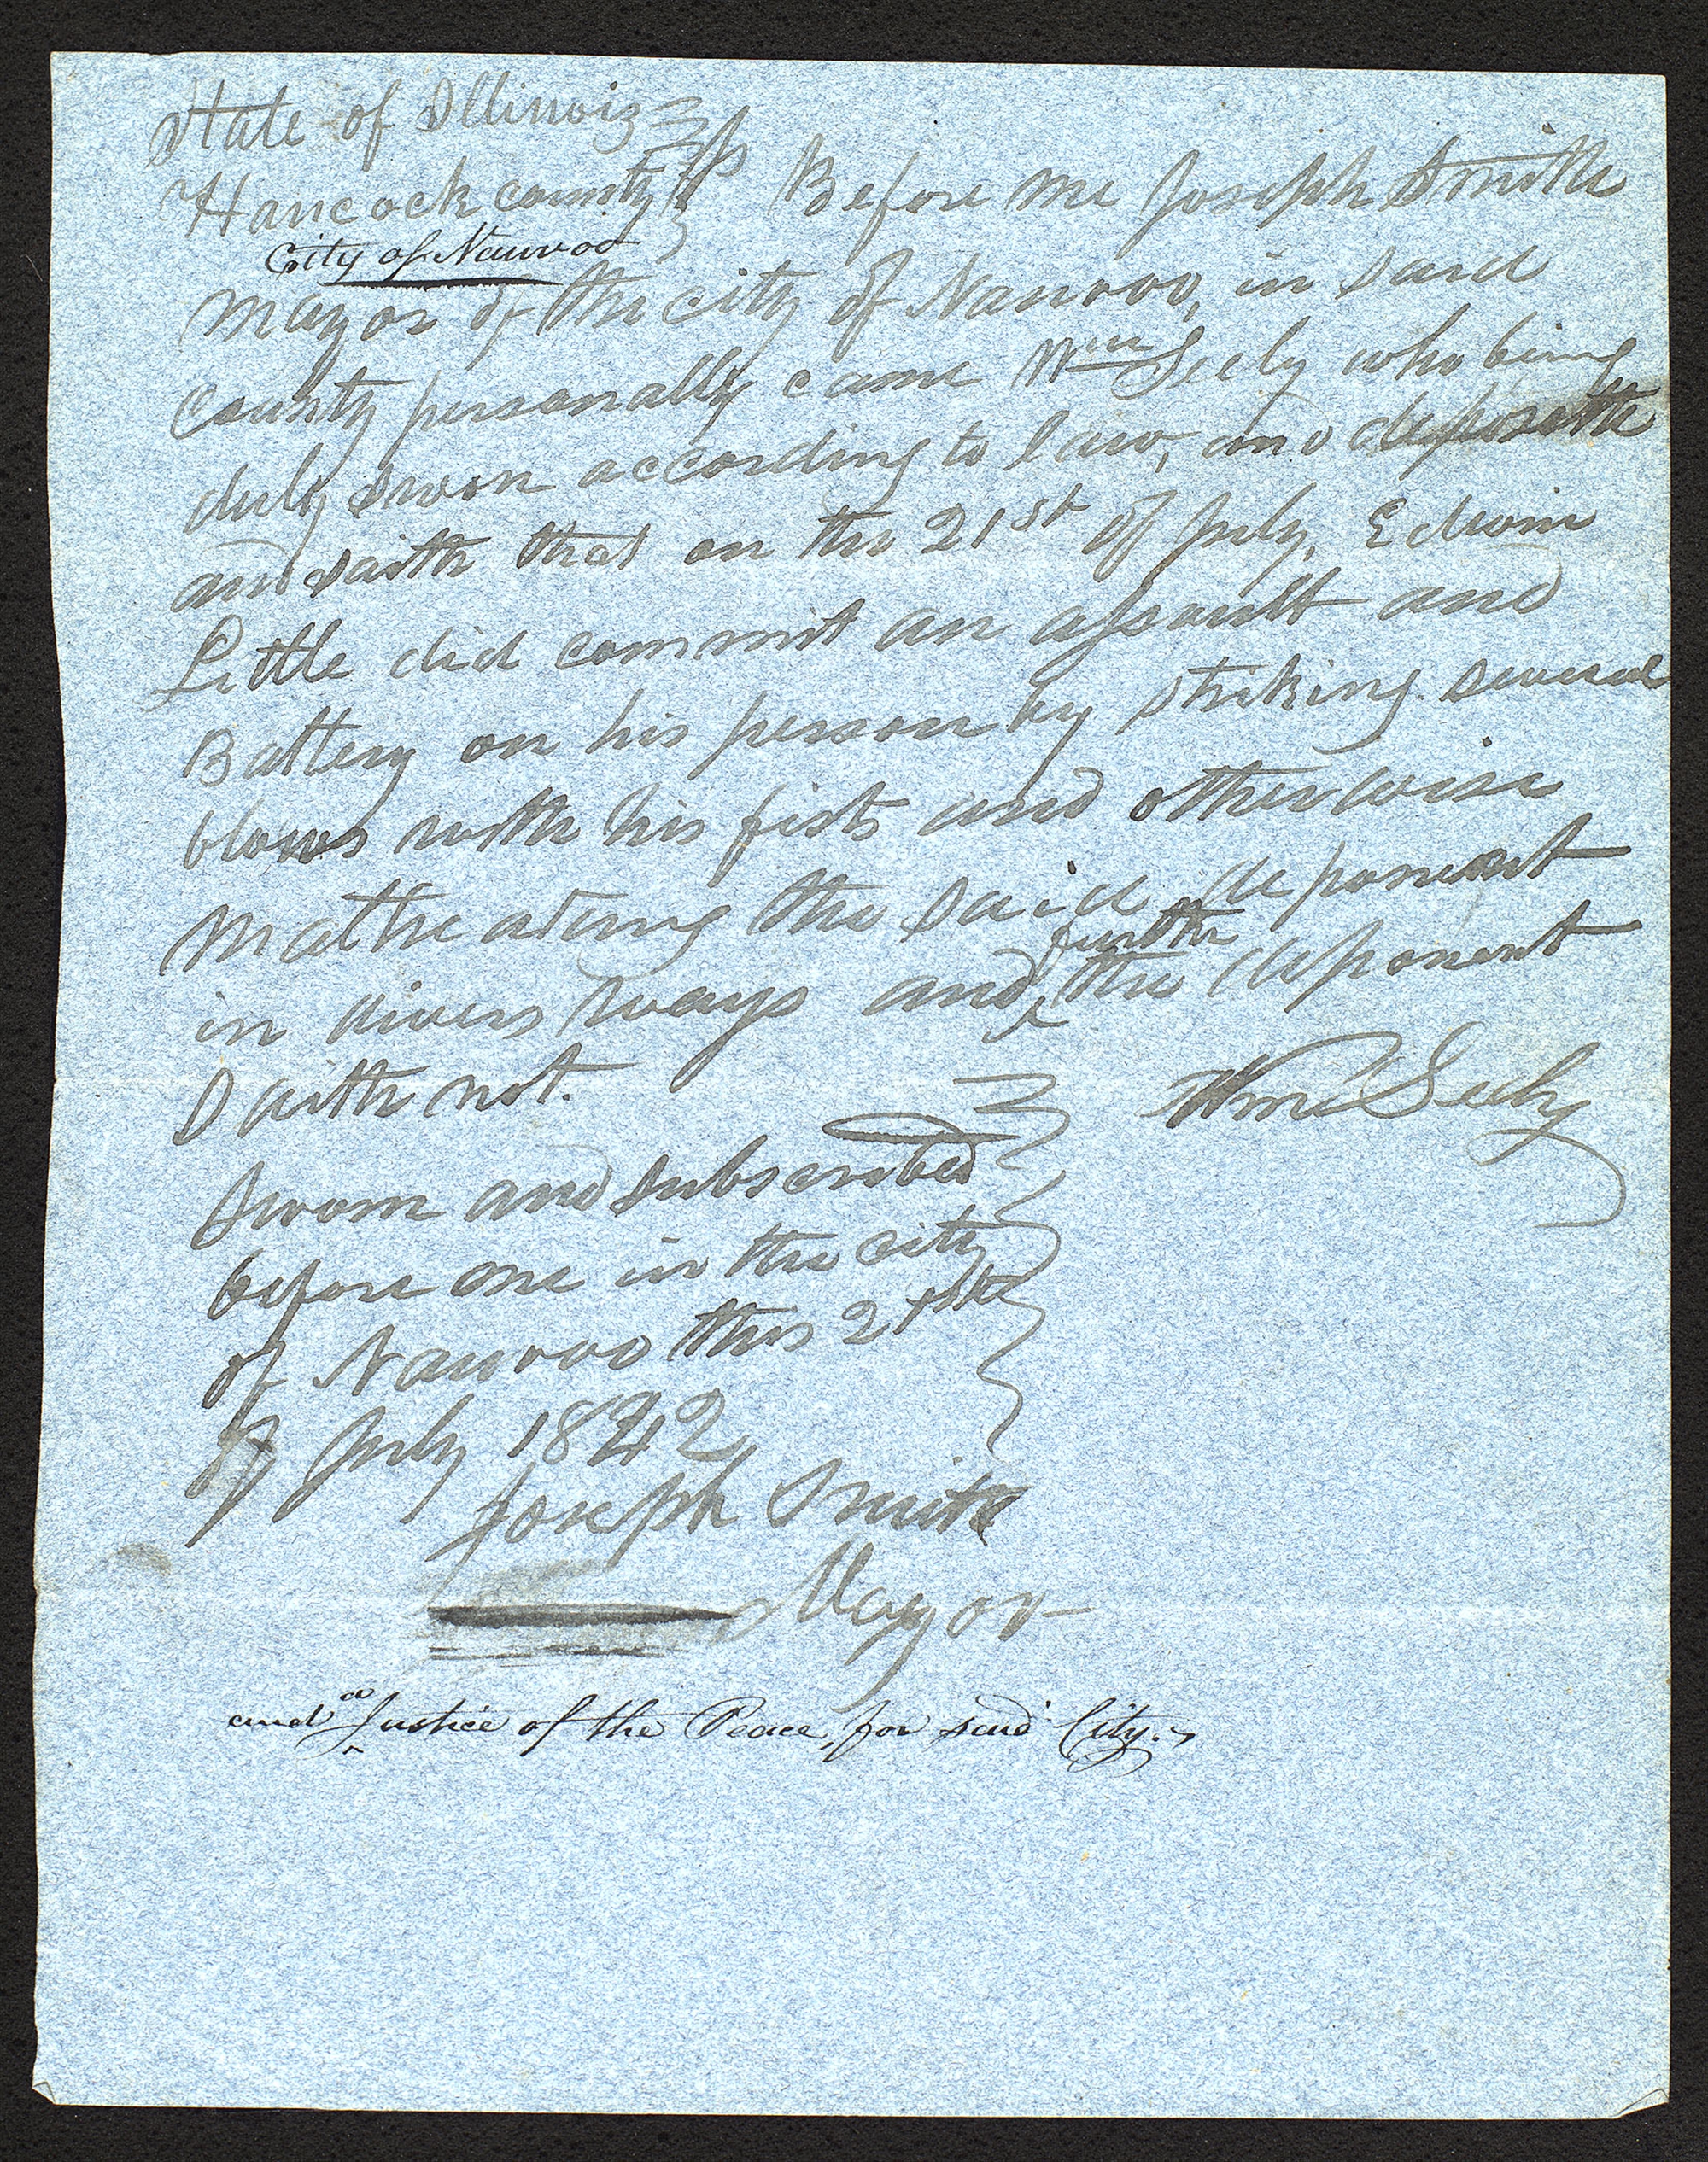 State of Illinois } ss
Hancock county } Before me Joseph Smith
City of Nauvoo
mayor of the city of Nauvoo, in said
county personally came Wm Seely who being
duly sworn according to law, and deposeth
and saith that on the 21st of July, Edwin
Little did commit an assault and
Battery on his person by striking several
blows with his fists and otherwise
maltreateing the said deponent
in divers ways and further the deponent
saith not.
Wm Seely
sworn and subscribed
before me in the city
of Nauvoo this 21st
of July 1842
Joseph Smith
Mayor
and a Justice of the Peace, for said City.